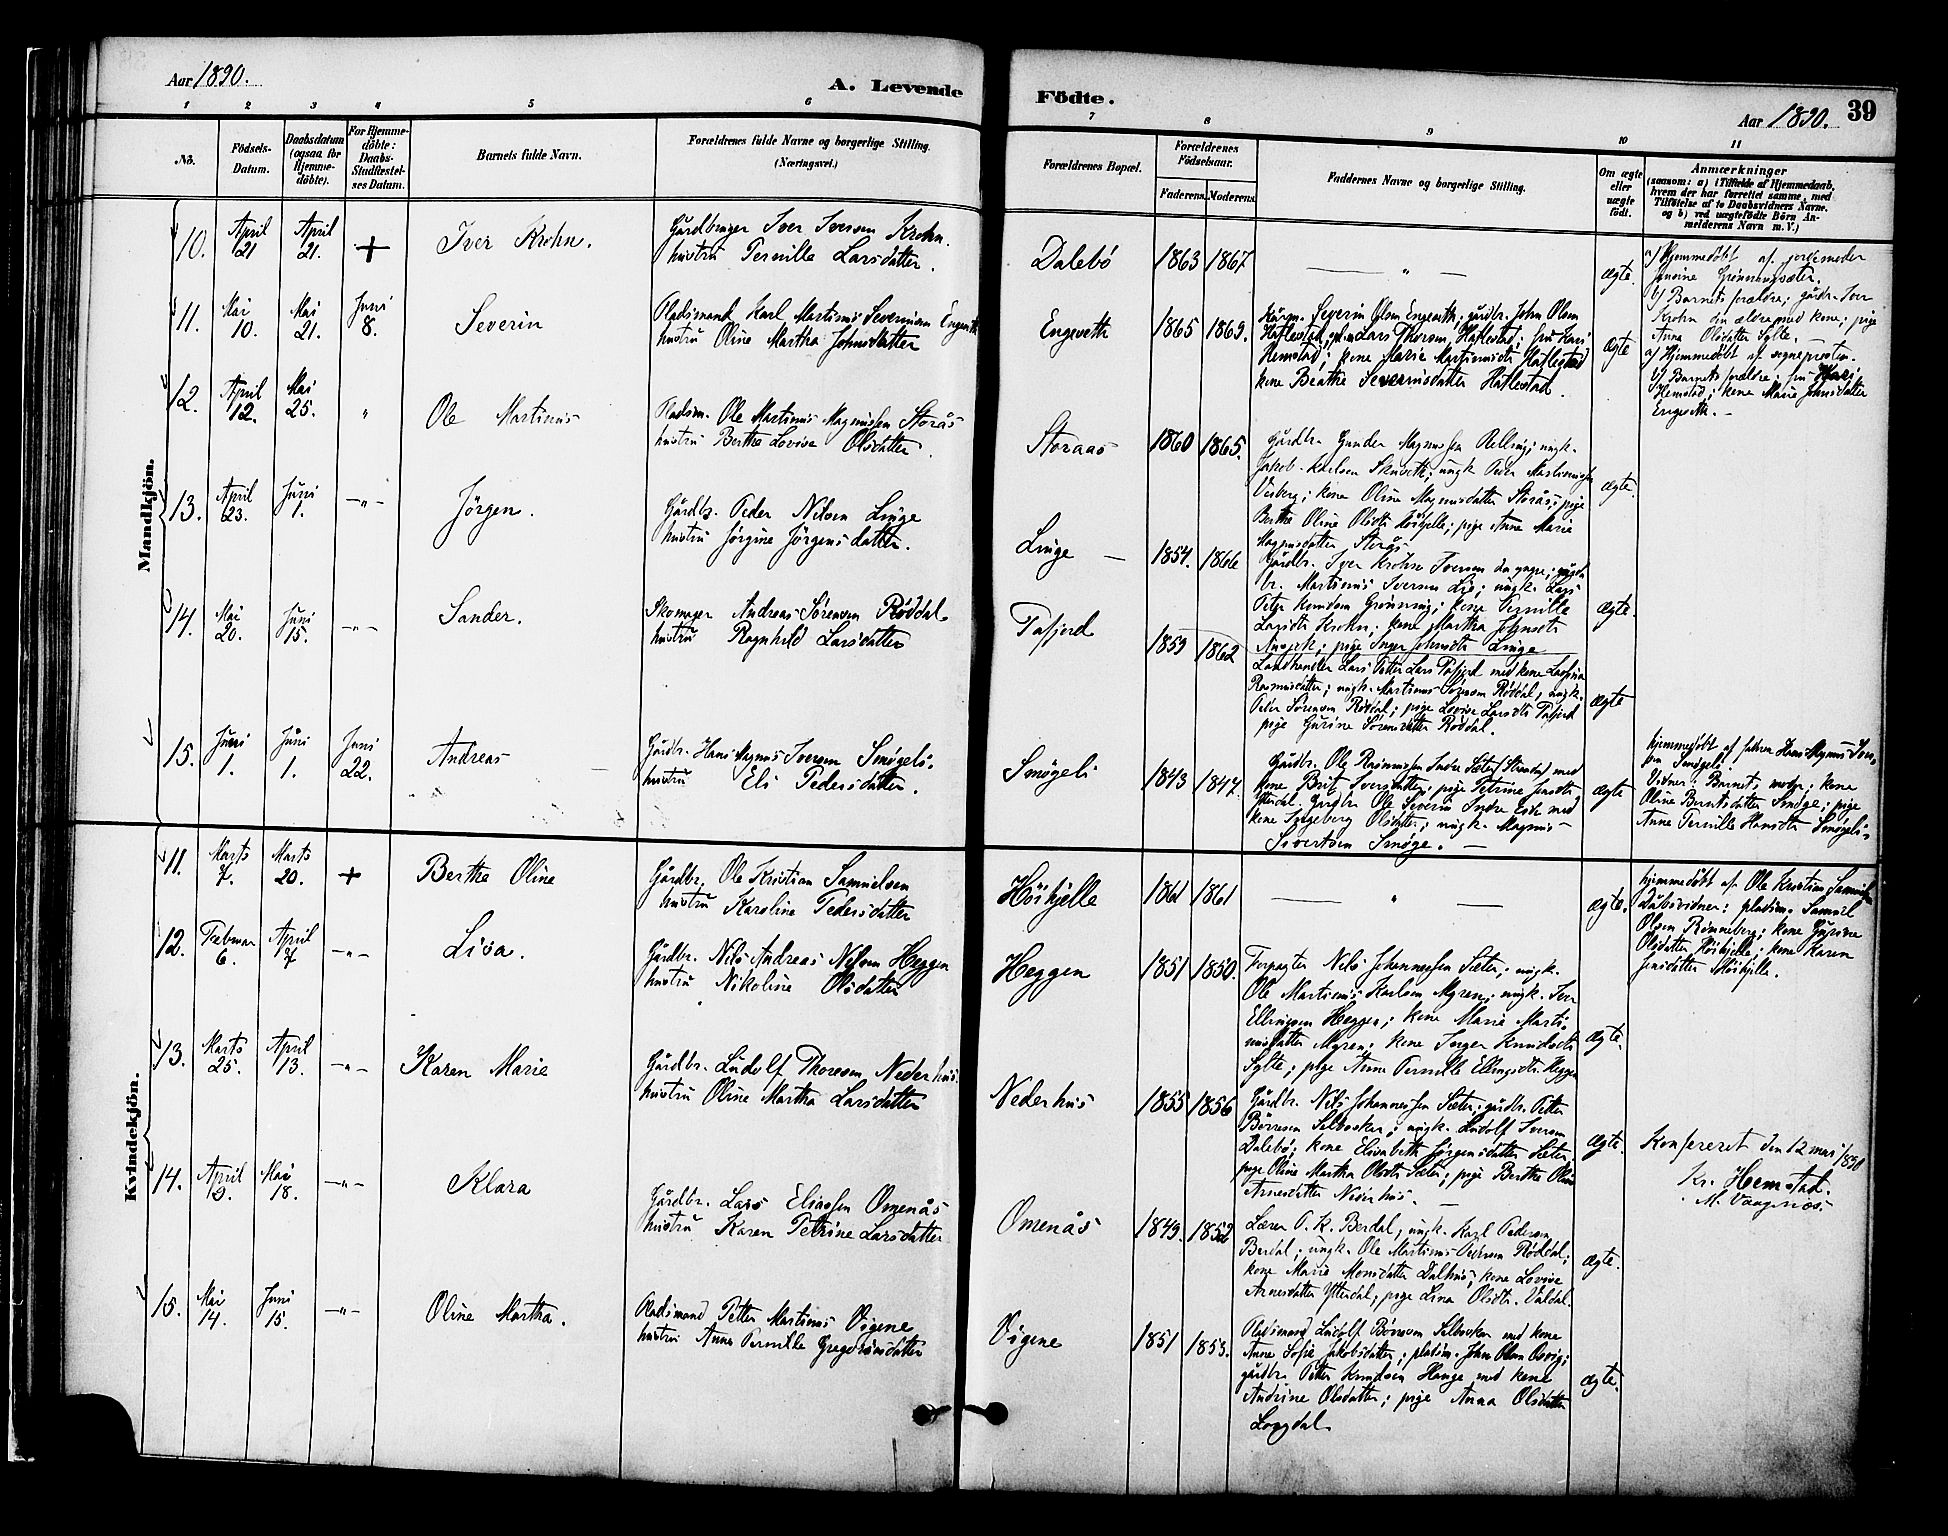 Aar 1890.
A. Levende
Födte.
Aar 1890. 39
1 2 3 4 5 6 7 8 9 10 11
No.
Födsels-Datum.
Daabsdatum (ogsaa for Hjemme-döbte).
For Hjemme-döbte: Daabs-Stadfæstel-ses Datum.
Barnets fulde Navn.
Forældrenes fulde Navne og borgerlige Stilling.
(Næringsvei.)
Forældrenes Bopæl.
Forældrenes Födselsaar.
Faderens. Moderens.
Faddernes Navne og borgerlige Stilling.
Om ægte eller uægte födt.
Anmærkninger
(saasom: a) i Tilfælde af Hjemmedaab,
hvem der har forrettet samme, med
Tilföielse af to Daabsvidners Navne.
og b) ved uægtefödte Börn An-
melderens Navn m. V.)
Mandkjön.
10. April 21 April 21. + Iver Krohn.
Gårdbruger Iver Iversen Krohn.
hustru Pernille Larsdatter.
Dalebö 1863 1867 — " — ægte.
a) Hjemmedöbt af jordemoder
Grønningsæter.
b) Barnets forældre; gårdr. Iver
Krohn den ældre med kone; pige
Anna Olsdatter Sylte. —
11. Mai 10. Mai 21. Juni 8. Severin
Pladsmand Karl Martinus Severinsen Engeseth
hustru Oline Martha Johnsdatter
Engeseth 1865 1869. Severin Olsen Engeseth; gårdbr. John Olsen
Haflestad; Lars Thorsen Haflestad; fru Kari
Hemstad; kone Marie Martinusdt. Haflestad
kone Beathe Severinsdatter Haflestad.
ægte
a) Hjemmedöbt af sogneprosten.
b) Barnets forældre; fru Kari
Hemstad; kone Marie Johnsdatter
Engeseth. —
12. April 12. Mai 25. " Ole Martinus
Pladsm. Ole Martinus Magnussen Storås
hustru Berthe Lovise Olsdatter.
Storaas 1860 1865. Gårdbr. Gunder Magnussen Relling; ungk.
Jakob Karlsen; ungk. Peder Martinussen
Viseberg; kone Oline Magnusdatter Storås; pige
Berthe Oline Olsdtr. Höshjelle; pige Anne Marie
Magnusdatter Storås
ægte.
13. April 23. Juni 1. —"— Jörgen.
Gårdbr. Peder Nilsen Linge
hustru Jörgine Jörgensdatter.
Linge — 1854. 1866 Gårdbr. Iver Krohn Iversen den yngre; gård-
br. Martinus Iversen Lie; ungk. Lars
Petter Grønning; kone Pernille
Larsdt. Krohn; kone Martha Johnsdt.
pige Inger Johnsdt. Linge
ægte.
14. Mai 20. Juni 15. —"— Sander.
Skomager Andreas Sörensen Röddal
hustru Ragnhild Larsdatter
Tafjord 1859 1862 Landhandler Lars Petter Lars. Tafjord med kone
Rasmusdatter; ungk. Martinus Sörensen Röddal, ungk.
Peder Sörensen Röddal; pige Lovise Larsdt. Tafjord
pige Gurine Sörensdatter Röddal.
ægte
15. Juni 1. Juni 1. Juni 22. Andreas —
Gårdbr. Hans Magnus Iversen Smögeli.
hustru Eli Pedersdatter.
Smögeli 1843 1847. Gårdbr. Ole Rasmussen Indre Sæter (Stranda) med
kone Brit Iversdatter; pige Petrine Jensdt.
Ytterdal. Gårdbr. Ole Severin Indre Eide med
kone Ingeborg Olsdatter; ungk. Magnus
Sivertsen Smöge. —
ægte
hjemmedöbt af faderen Hans Magnus Iver-
sen Smögeli
Vidner: Barnets moder; kone
Oline Berntsdatter Smöge; pige
Anne Pernille Hansdt. Smögeli
Kvindekjön.
11. Marts 7. Marts 20. + Berthe Oline
Gårdbr. Ole Kristian Samuelsen
hustru Karoline Pedersdatter
Höshjelle 1861 1861 — " — ægte.
hjemmedöbt af Ole Kristian Samuelsen
Dåbsvidner: pladsm. Samuel
Olsen Rönneberg; kone Gurine
Olsdatter Höshjelle; kone Karen
Jensdatter Höshjelle.
12. Februar 6. April 7 —"— Lisa.
Gårdbr. Nils Andreas Nilsen Heggen
hustru Nikoline Olsdatter
Heggen 1851 1850. Forpagter Nils Johannessen Sæter; ungk.
Ole Martinus Karlsen Myren; ungk. Iver
Ellingsen Heggen; kone Marie Marti-
nusdatter Myren; kone Inger Knudsdt.
Sylte; pige Anne Pernille Ellingsdt. Heggen
ægte.
13. Marts 25. April 13. —"— Karen Marie
Gårdbr. Ludolf Thoresen Nederhus.
hustru Oline Martha Larsdatter
Nederhus 1855 1856 Gårdbr. Nils Johannessen Sæter; gårdbr. Petter
Börresen Selboskar; ungk. Ludolf Iversen
Dalebö; kone Elisabeth Jörgensdatter Sæter
pige Oline Martha Olsdt. Sæter; pige Berthe Oline
Arnesdatter Nederhus —
ægte.
Konfereret den 12 mai/890
Kr. Hemstad.
M. Vaagenæs.
14. April 19. Mai 18. —"— Klara
Gårdbr. Lars Eliassen Omenås
hustru Karen Petrine Larsdatter
Omenås 1849. 1852 Lærer P. K. Berdal, ungk. Karl Pedersen
Berdal; ungk. Ole Martinus Pedersen Röddal;
kone Marie Monsdatter Dalhus; kone Lovise
Arnesdatter Ytterdal; pige Lina Olsdt. Valdal.
ægte.
15. Mai 14. Juni 15. —"— Oline Martha.
Pladsmand Petter Martinus Vigene
hustru Anne Pernille Gregoriusdatter
Vigene 1851 1853. Pladsmand Ludolf Börresen Selboskar med kone
Anne Sofie Jakobsdatter; pladsm. John Olsen Osvig;
gårdbr. Petter Knudsen Hauge med kone
Andrine Olsdatter; pige Anna Olsdatter
Langdal
ægte.